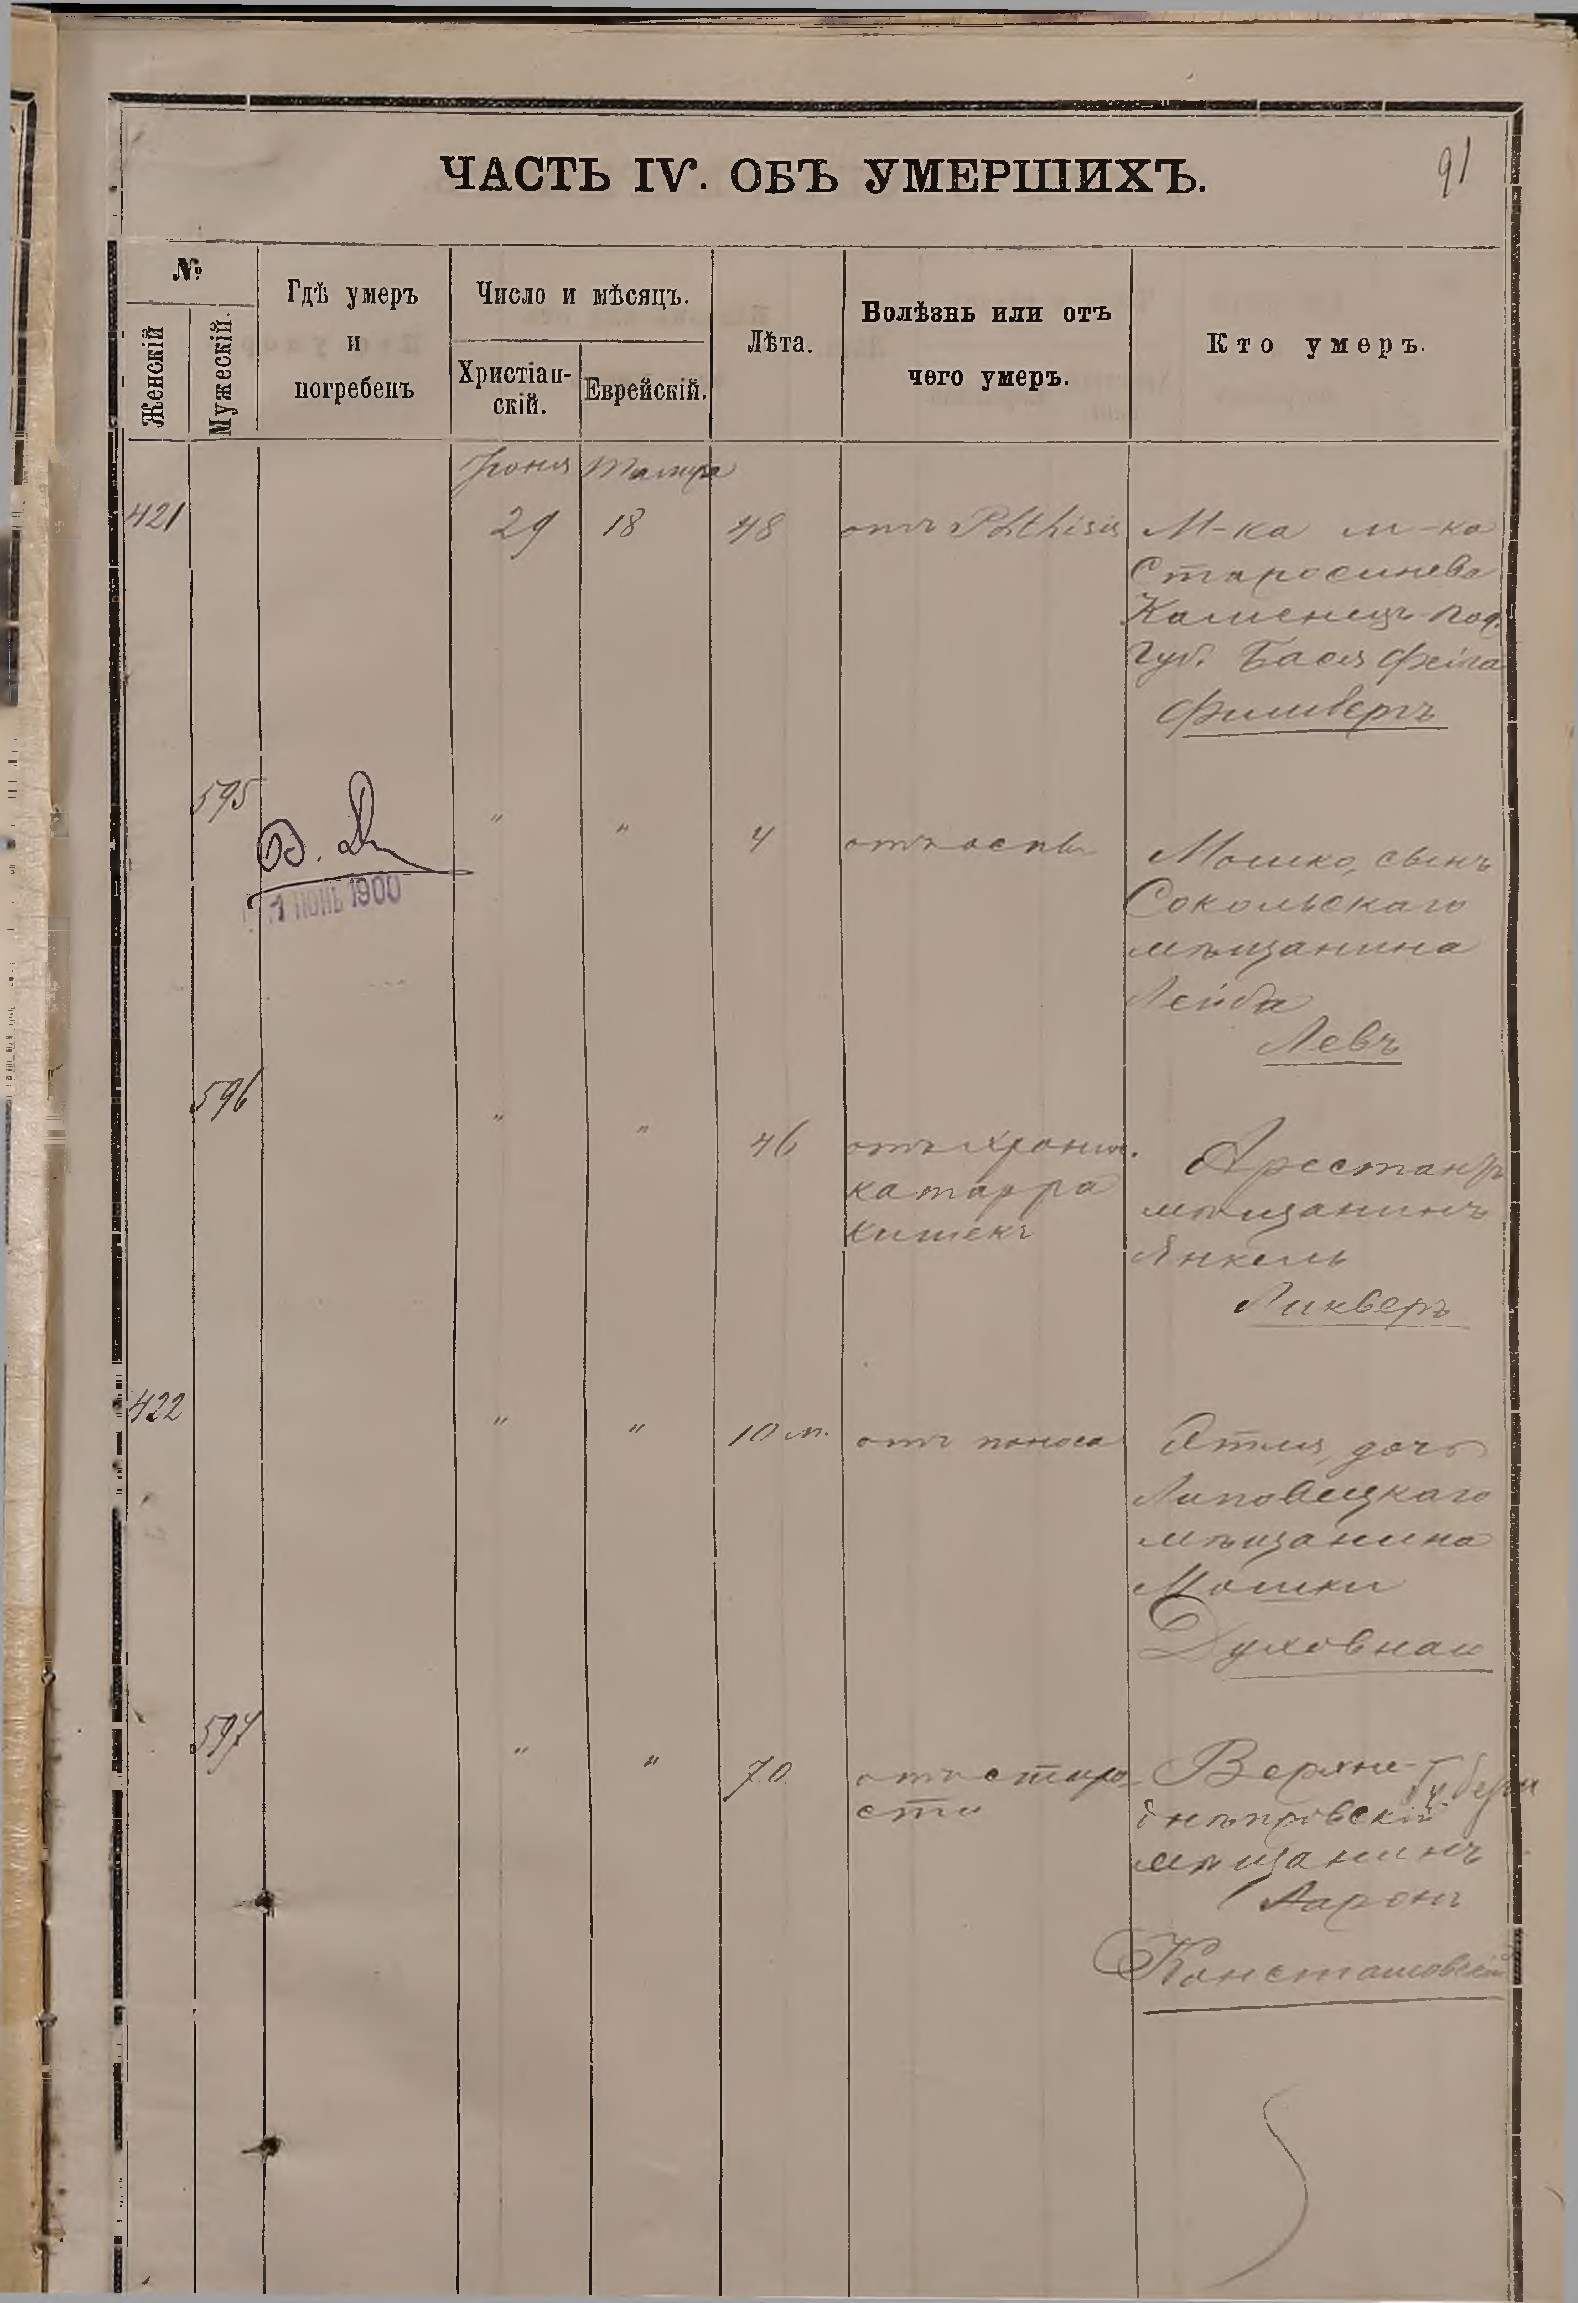 91
ЧАСТЬ IV. ОБЪ УМЕРШИХЪ.
№
Женскій
Мужескій.
Гдѣ умеръ
и
погребенъ
Число и мѣсяцъ.
Христіан-
скій.
Еврейскій.
Лѣта.
Болѣзнь или отъ
чего умеръ.
Кто умеръ.
Іюня Тамуза
421 29 18 48 отъ Phthisis М-ка м-ка
Старосинева
Каменецъ-Под.
Губ. Бася Фейга
595 " " 4 отъ оспы Мошко, сынъ
Сокольскаго
мѣщанина
Лейба
Левъ
1 ІЮНЬ 1900
596 " " 46 отъ хронич. Арестантъ
катарра мѣщанинъ
кишекъ Янкель
Ликверъ
422 " " 10 м. отъ поноса Этля, дочь
Липовецкаго
мѣщанина
Мошки
Духовная
597 " " 70 отъ старо- Верхне-
сти днѣпровскій
мѣщанинъ
Ааронъ